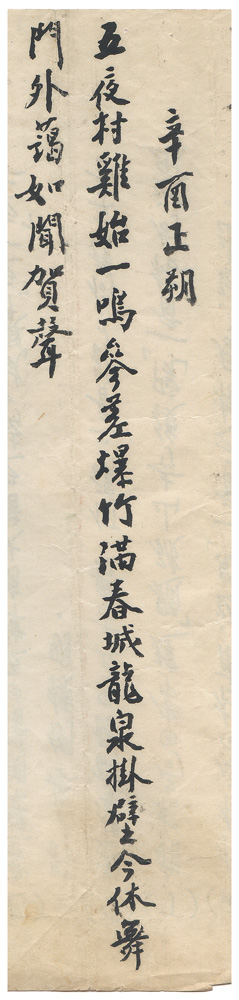 辛酉正朔
五夜村雞始一鳴參差爆竹滿春城龍泉掛壁今休舞
門外藹如聞賀聲